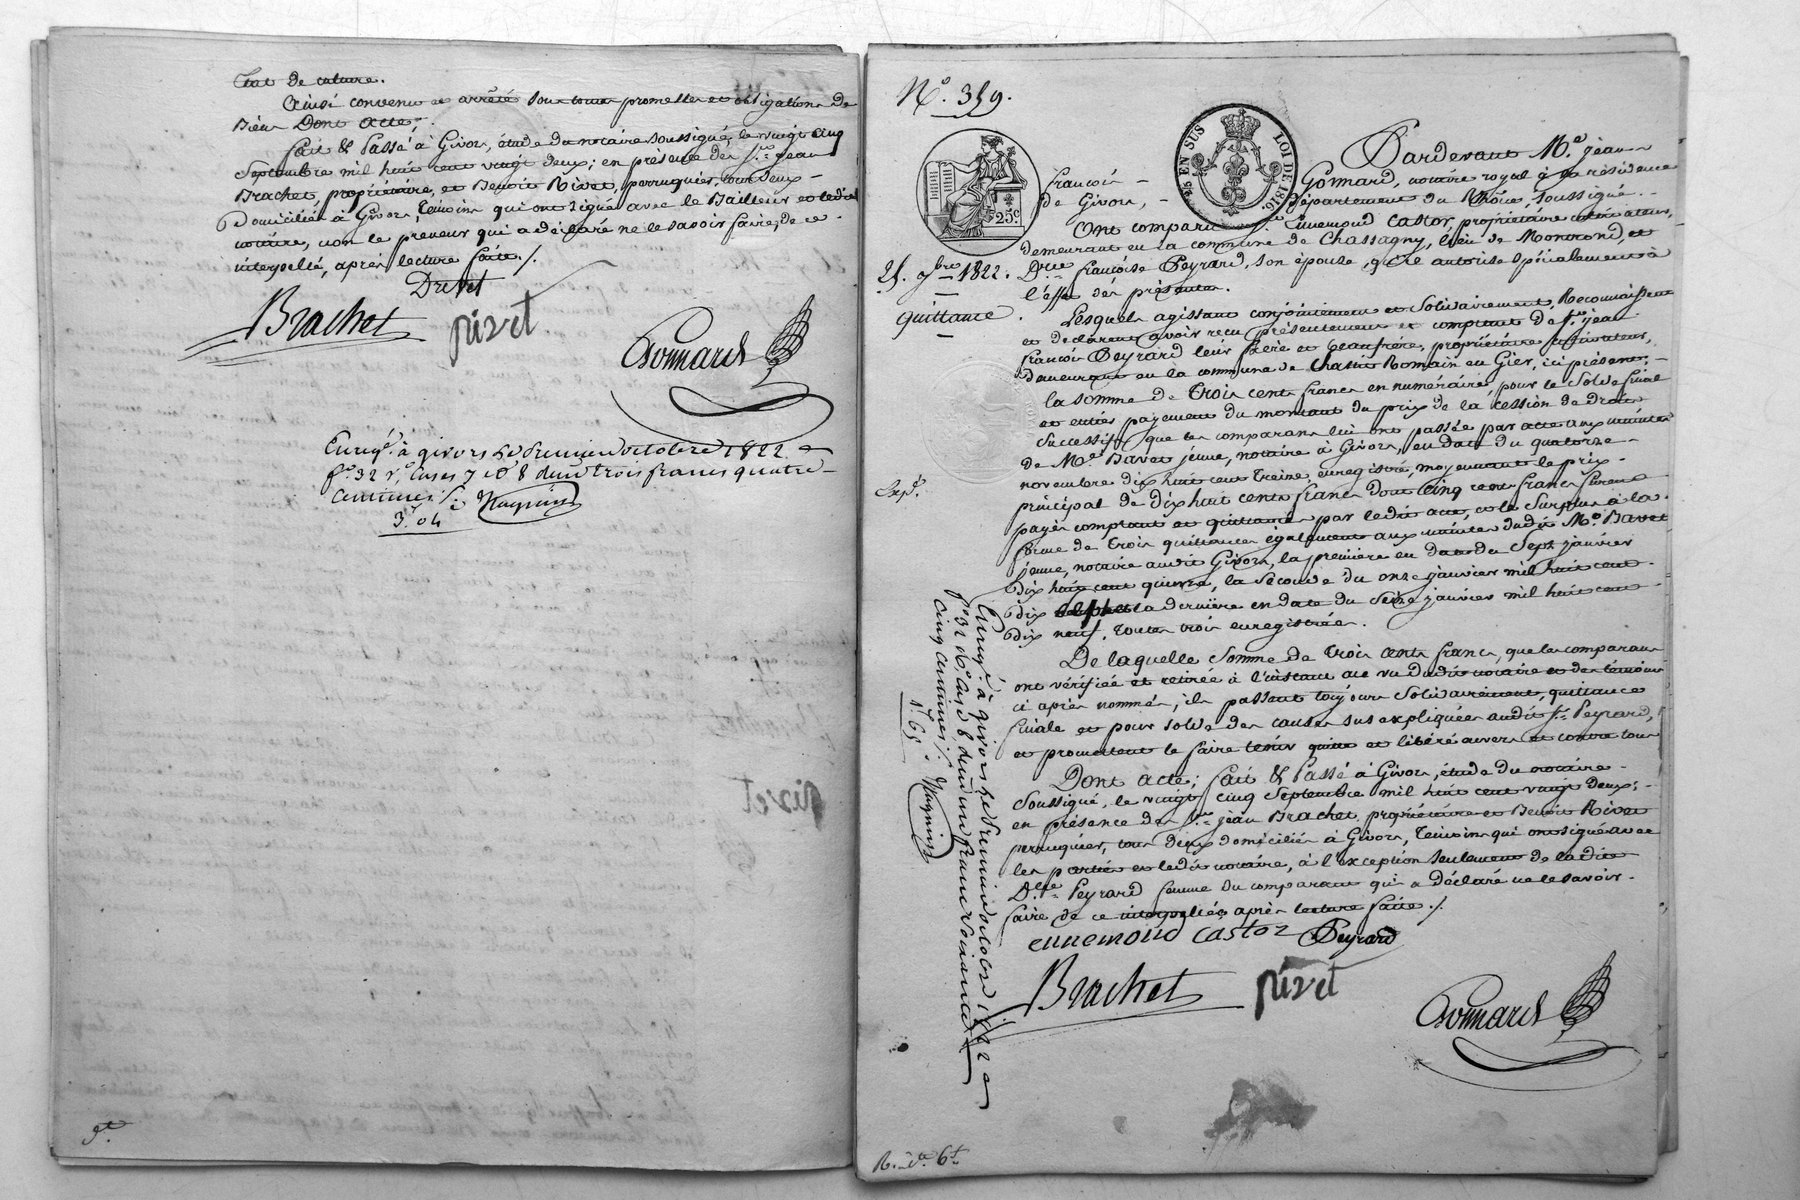 État de culture.
Ainsi convenu et arrêté sous toutes promesses et obligations de
Biens Dont acte.
fait & Passé à Givors, étude du notaire soussigné, le vingt cinq
Septembre mil huit cent vingt deux; en présence des Srs jean
Brachet, propriétaire, et Benoit Rivet, perruquier, tous deux
Domiciliés à Givors, témoins qui ont signé avec le Bailleur et ledit
notaire, non le preneur qui a déclaré ne le savoir faire, de ce
interpellé, après lecture faite./.
Drevet
Brachet rivet
Gonnard
Enregé à givors le premier octobre 1822
f° 32 r° Cases 7 et 8 deux trois francs quatre
centimes
3f 04
N° 359.
25 EN SUS LOI DE 1816.
25c
Pardevant Me jean
françois Gonnard, notaire royal à la résidence
de Givors, Département du Rhône, soussigné.
Ont comparu Sr Ennemond Castor, propriétaire cultivateur,
demeurant en la commune de Chassagny, lieu de Montrond, et
25. 7bre 1822. Dlle françoise Peyrard, son épouse, qu'il autorise spécialement à
l'effet des présentes.
quittance
Lesquels agissant conjointement et solidairement, Reconnaissent
et déclarent avoir reçu présentement et comptant de Sr jean
françois Peyrard leur frère et beaufrère, propriétaire cultivateur,
demeurant en la commune de Saint Romain en Gier, ici présent,
la somme de trois cents francs en numéraire, pour le solde final
et entier payement du montant du prix de la cession de droits
successifs que les comparans lui ont passée par acte aux minutes
de Me Bavet jeune, notaire à Givors, en date du quatorze
novembre dix huit cent treize, enregistré, moyennant le prix
Expé.
principal de dix huit cents francs dont cinq cents francs furent
payés comptant et quittancés par ledit acte, et le surplus à la
forme de trois quittances également aux minutes dudit Me Bavet
jeune, notaire audit Givors, la première en date du Sept janvier
Dix huit cent quinze, la seconde du onze janvier mil huit cent
dix sept, la dernière en date du Seize janvier mil huit cent
Dix neuf. toutes trois enregistrées.
De laquelle somme de trois cents francs, que les comparans
ont vérifiée et retirée à l'instant au vu dudit notaire et des témoins
ci après nommés, ils passent toujours solidairement, quittance
finale et pour solde des causes sus expliquées audit Sr Peyrard,
et promettent le faire tenir quitte et libéré envers et contre tous
Dont acte; fait & Passé à Givors, étude du notaire
soussigné, le vingt cinq Septembre mil huit cent vingt deux;
en présence des Srs jean Brachet, propriétaire et Benoit Rivet
perruquier, tous deux domiciliés à Givors, témoins qui ont signé avec
les parties et ledit notaire, à l'exception seulement de ladite
Dlle Peyrard femme du comparant qui a déclaré ne le savoir
faire de ce interpellée après lecture faite./.
ennemond castor Peyrard
Brachet rivet
Gonnard
Enregé à givors le premier octobre 1822
f° 32 r° Case 8 deux un franc soixante
cinq centimes
1f 65